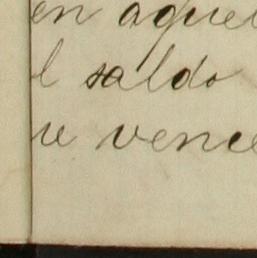 en aquel
l saldo
ue vence